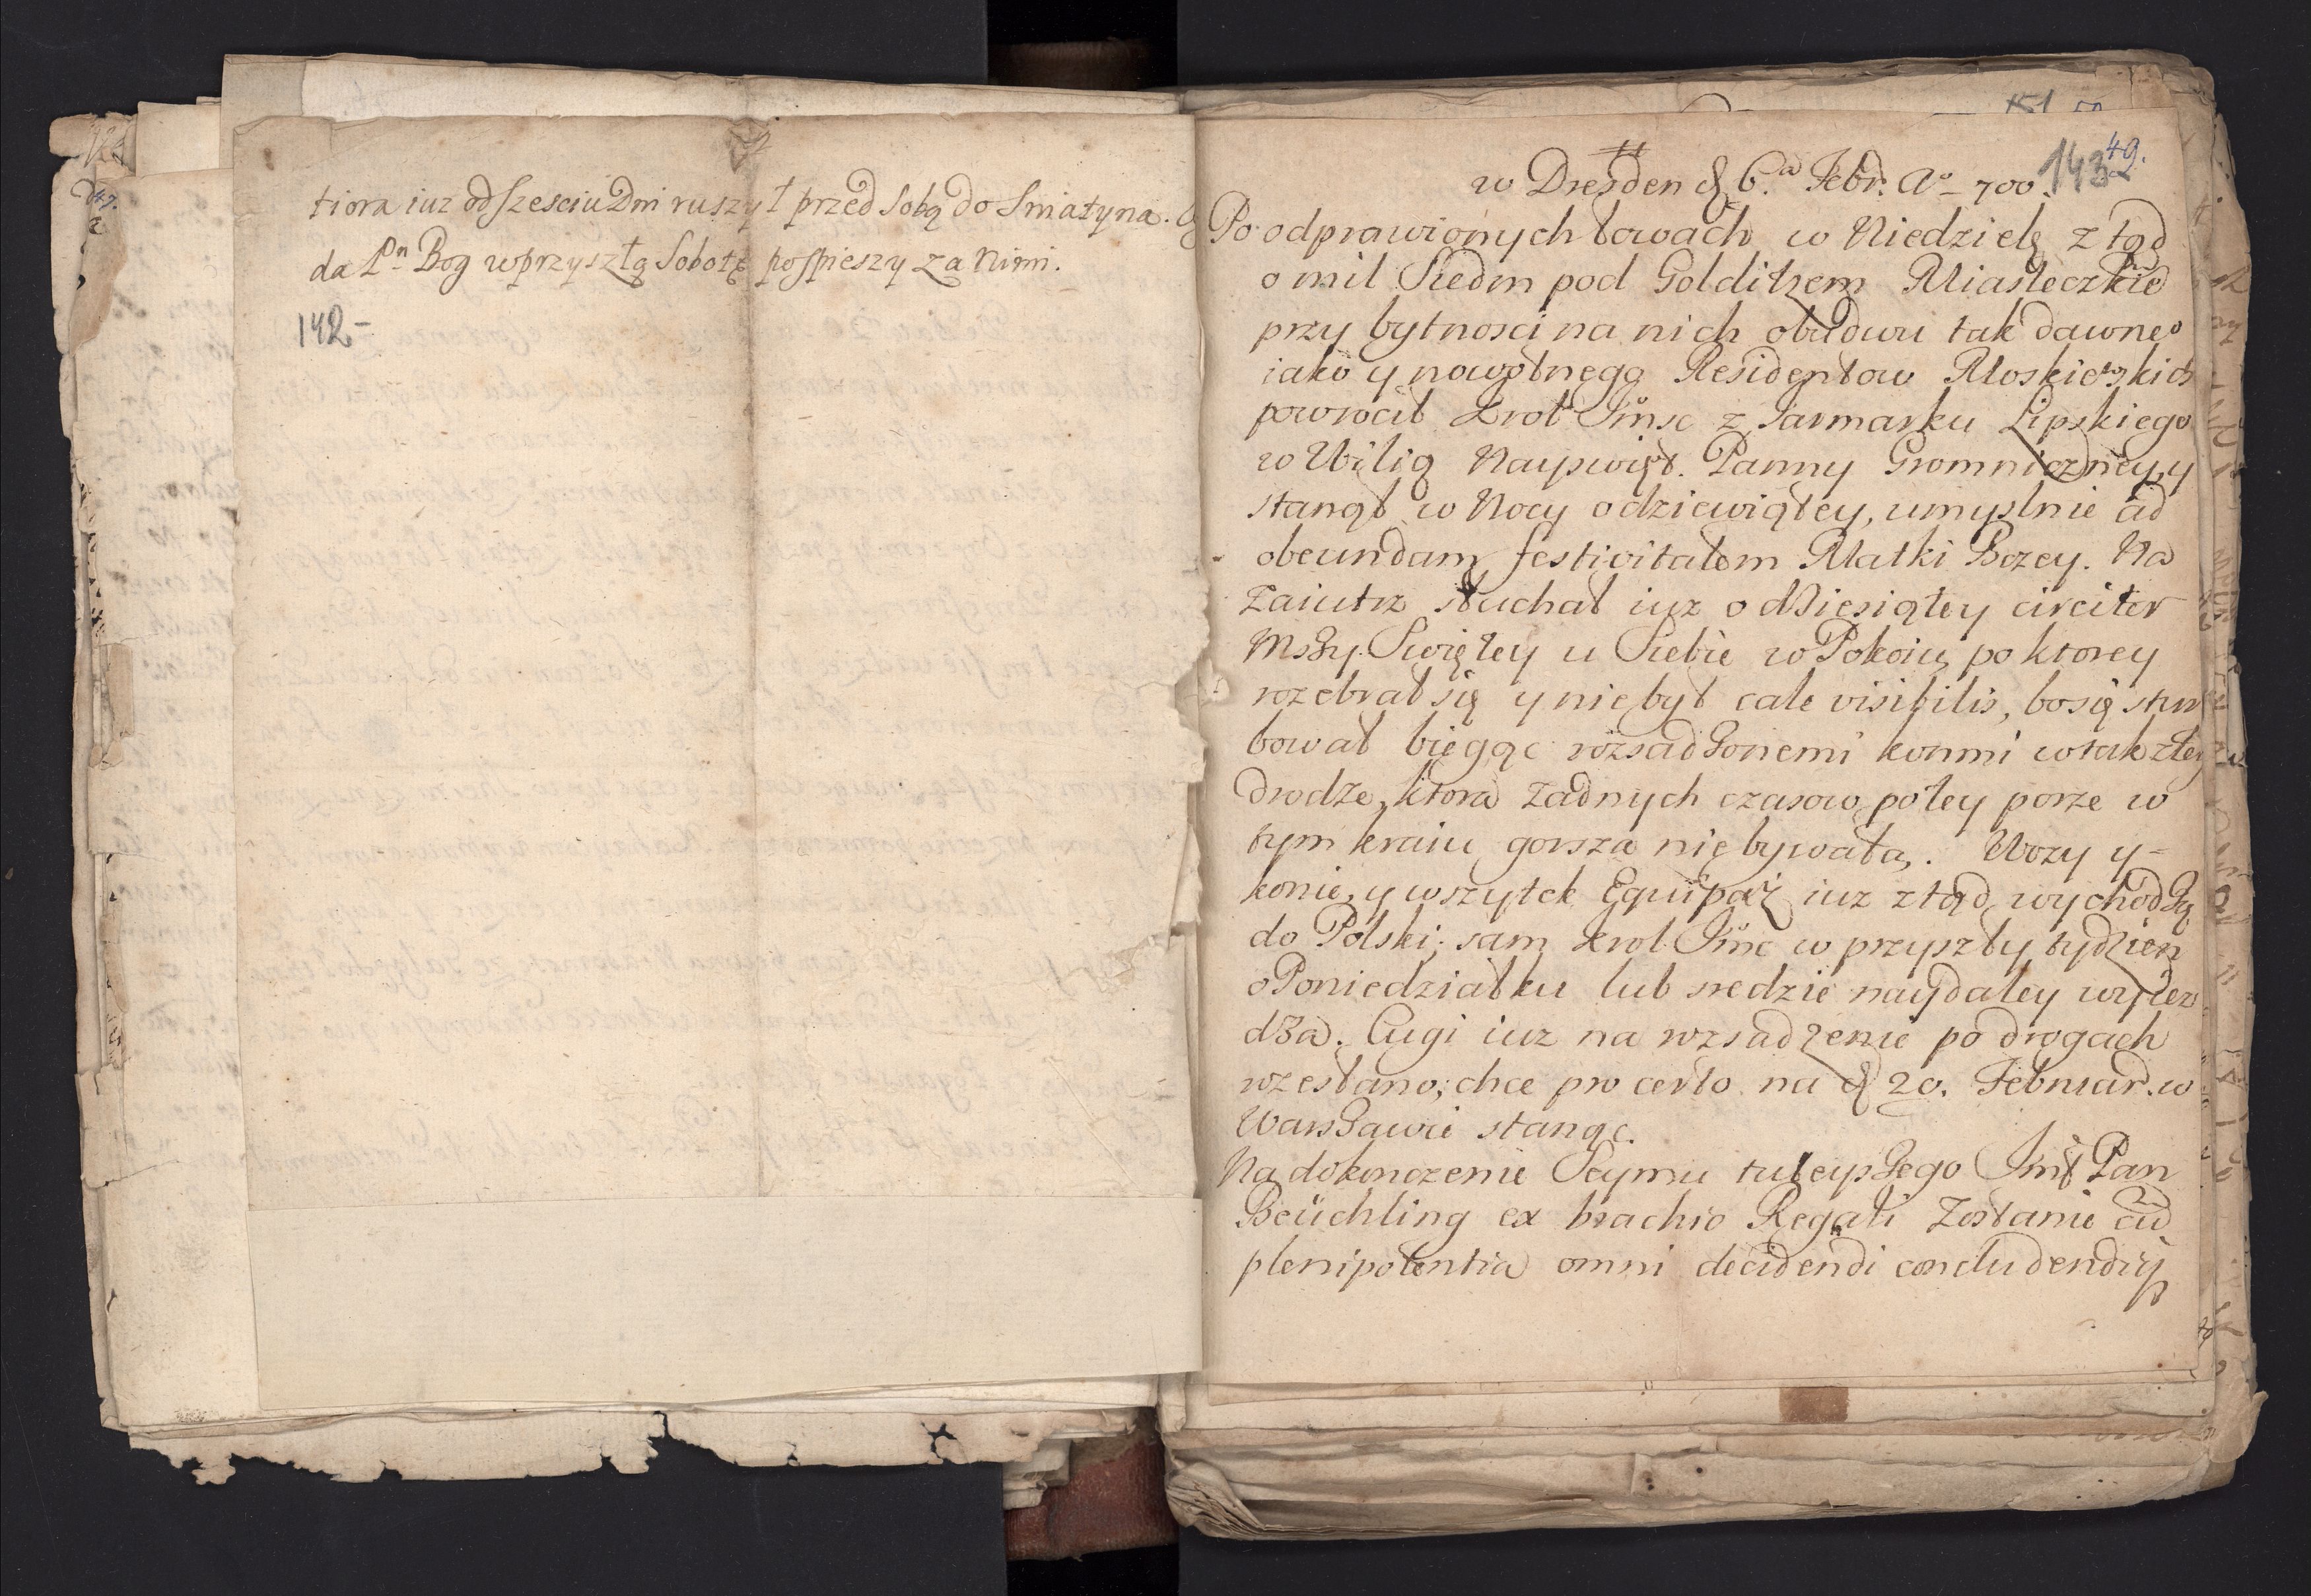 tiora iuz od szesciu Dni ruszył przed sobą do Sniatyna.
da Pn Bog w przyszłą Sobotę pospieszy za nimi.
142-
151 50
143 49.
w Dresden d. 6.a Febr. Ao 700.
Po odprawionych łowach w Niedzielę ztąd
o mil Siedm pod Golditzem Miasteczkiē
przy bytnosci na nich obudwu tak dawneo
iako y nowotnego Residentow Moskiewskich
powrocił Krol Jmsc z Jarmarku Lipskiego
w Wilią Nayswięt. Panny Gromniczney, y
stanął w Nocy o dziewiątey, umyslnie ad
obeundam festivitatem Matki Bozey. Na
zaiutrz słuchał iuz o dziesiątey circiter
Mszy Swiętey u Siebie w Pokoiu, po ktorey
rozebrał się y nie był cale visibilis, bo się stur
bował biegąc rozsadzonemi konmi w tak złey
drodze, ktora zadnych czasow po tey porze w
tym kraiu gorsza nie bywała. Wozy y-
konie, y wszytek Equipaż iuz ztąd wychodzą
do Polski; sam Krol Jmc w przyszły tydzien
o Poniedziałku lub sredzie naydaley wyiez
dza. Cugi iuz na rozsadzenie po drogach
rozesłano; chce pro certo na d. 20. Februar. w
Warszawie stanąc.
Na dokonczenie Seymu tuteyszego Jmć Pan
Beüchling ex brachio Regali zostanie cū
plenipotentia omni decidendi concludendiq